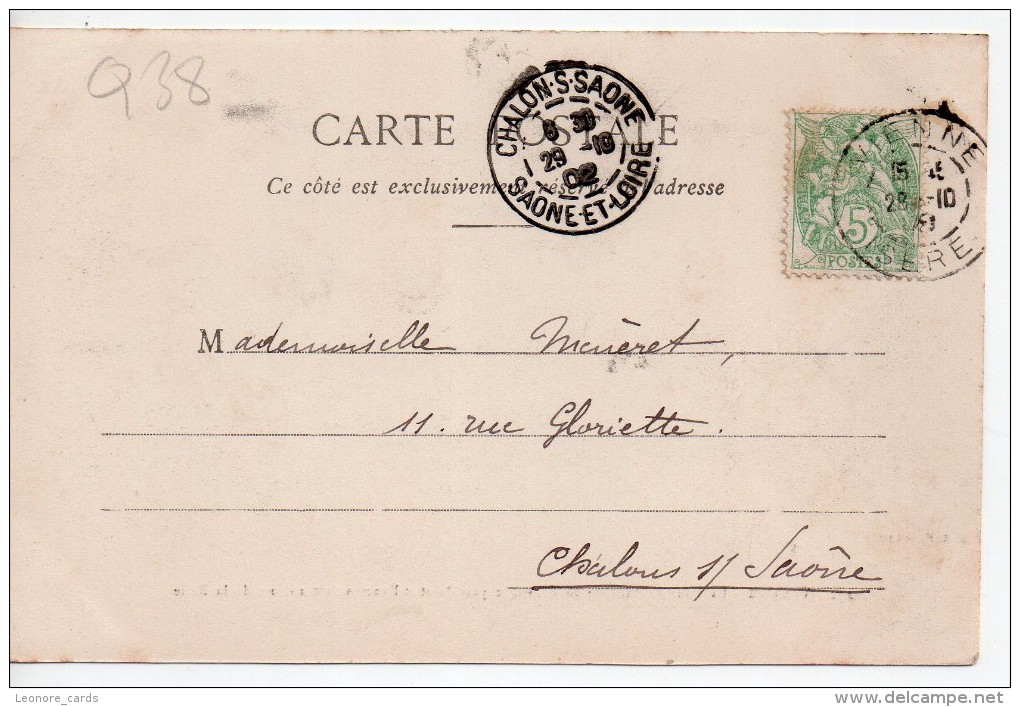 Q38
CARTE POSTALE
Ce côté est exclusivement réservé à l'adresse
CHALON-S-SAONE
8 30
29 -10
02
SAONE-ET-LOIRE
VIENNE
15 45
28 -10
ISERE
5
POSTES
Mademoiselle Menèret,
11. rue Gloriette.
Châlons s/ Saône
Leonore_cards
www.delcampe.net